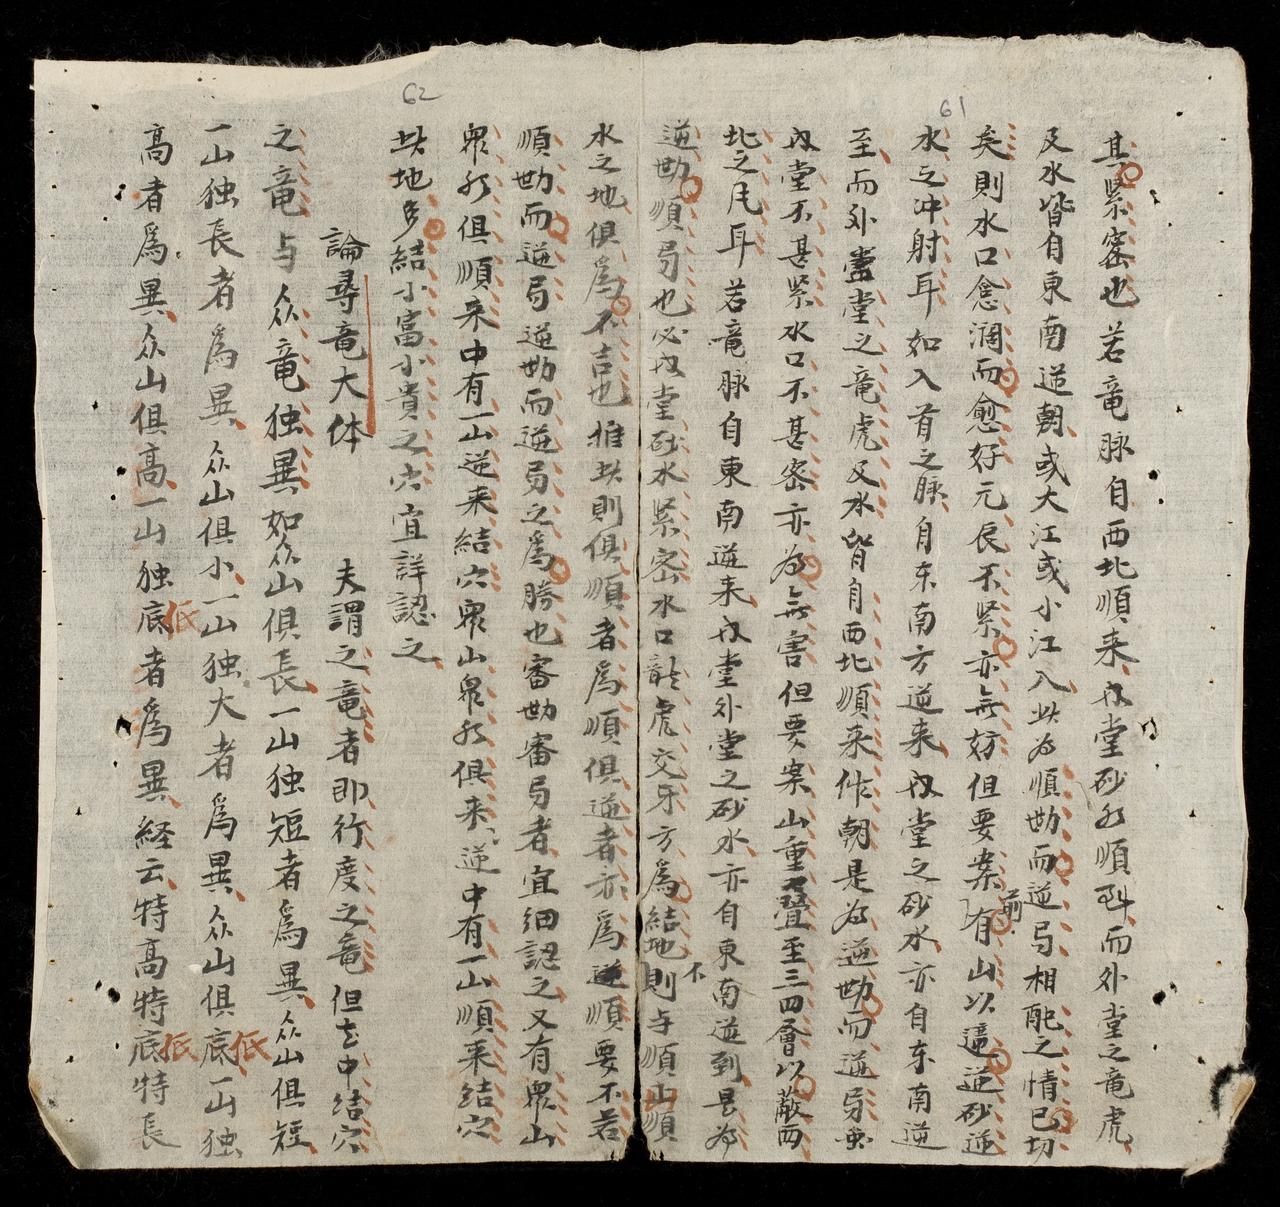 61
其紧密也若竜脉自西北順来内堂砂水順斜而外堂之竜虎
及水皆自東南逆朝或大江或小江入此为順勘而逆局相配之情已切
矣則水口愈濶而愈好元辰不紧亦無妨但要案前有山以逼逆砂逆
水之冲射耳如入首之脉自东南方逆来内堂之砂水亦自东南逆
至而外堂之竜虎及水皆自西北順来作朝是为逆勘而逆局虽
内堂不甚紧水口不甚密亦为無害但要案山重疊至三四會以蔽西
北之凡耳若竜脉自東南逆来内堂外堂之砂水亦自東南逆到是为
逆勘順局也必内堂砂水紧密水口龍虎交牙方爲結地不則与順山順
62
水之地俱爲不吉也推此則俱順者爲順俱逆者亦爲逆順要不若
順勘而逆局逆勘而逆局之爲勝也審勘審局者宜细認之又有眾山
眾水俱順来中有一山逆来結穴眾山眾水俱来逆中有一山順来结穴
此地多結小富小貴之穴宜詳認之
論尋竜大体 夫謂之竜者即行度之竜但去中结穴
之竜与众竜独異如众山俱長一山独短者爲異众山俱短
一山独長者爲異众山俱小一山独大者爲異众山俱底低一山独
高者爲異众山俱高一山独底低者爲異経云特高特底低特長